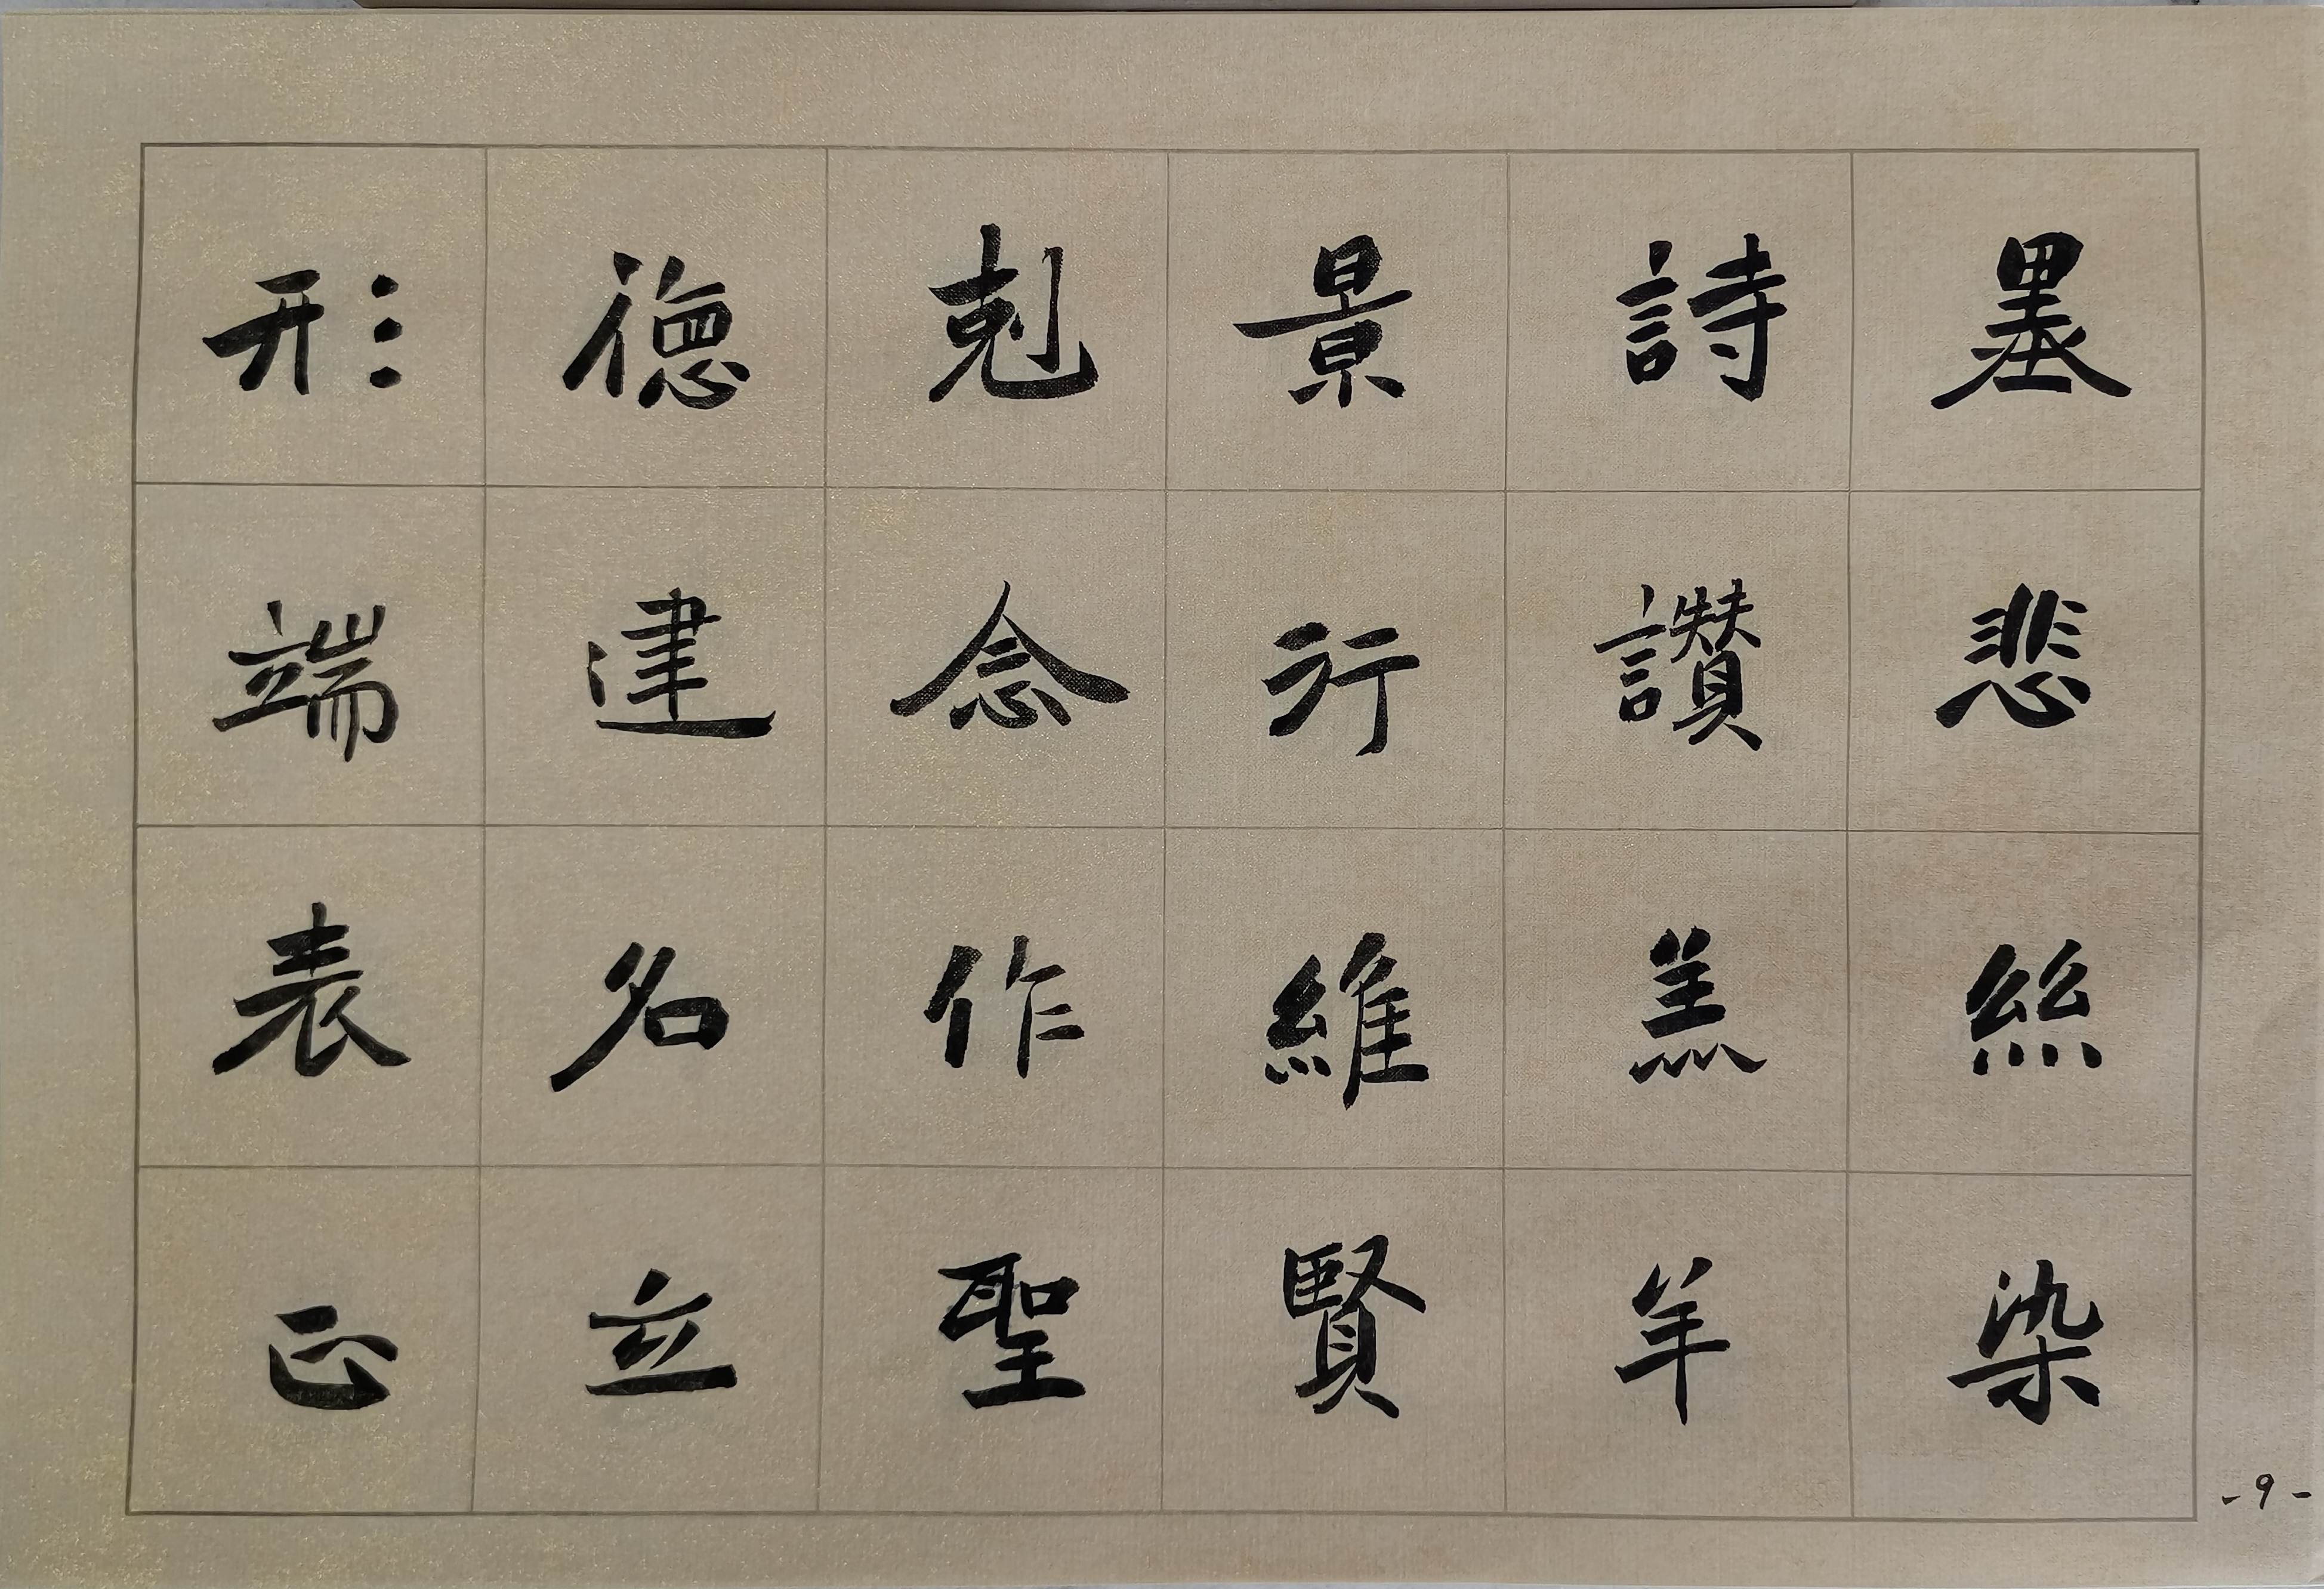 墨悲絲染
詩讚羔羊
景行維賢
剋念作聖
德建名立
形端表正
-9-